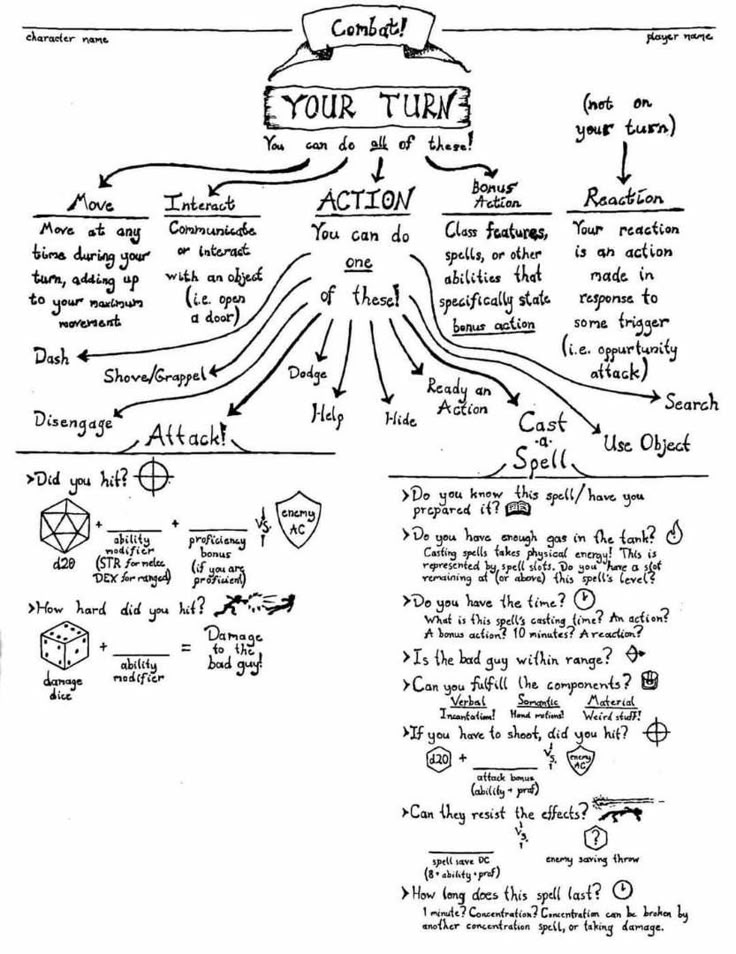 Combat!
character name
player name
YOUR TURN
You can do all of these!
(not on
your turn)
Move
Move at any
time during your
turn, adding up
to your maximum
movement
Interact
Communicate
or interact
with an object
(i.e. open
a door)
ACTION
You can do
one
of these!
Bonus
Action
Class features,
spells, or other
abilities that
specifically state
bonus action
Reaction
Your reaction
is an action
made in
response to
some trigger
(i.e. oppurtunity
attack)
Dash
Shove/Grappel
Disengage
Attack!
Dodge
Help
Hide
Ready an
Action
Cast
·a·
Spell
Use Object
Search
>Did you hit?
d20
+
ability
modifier
(STR for melee
DEX for ranged)
+
proficiency
bonus
(if you are
proficient)
vs.
enemy
AC
>How hard did you hit?
damage
dice
+
ability
modifier
=
Damage
to the
bad guy!
>Do you know this spell/have you
prepared it?
>Do you have enough gas in the tank?
Casting spells takes physical energy! This is
represented by spell slots. Do you have a slot
remaining at (or above) this spell's level?
>Do you have the time?
What is this spell's casting time? An action?
A bonus action? 10 minutes? A reaction?
>Is the bad guy within range?
>Can you fulfill the components?
Verbal Somantic Material
Incantation! Hand motions! Weird stuff!
>If you have to shoot, did you hit?
d20
+
attack bonus
(ability + prof)
vs.
enemy
AC
>Can they resist the effects?
spell save DC
(8 + ability + prof)
vs.
?
enemy saving throw
>How long does this spell last?
1 minute? Concentration? Concentration can be broken by
another concentration spell, or taking damage.